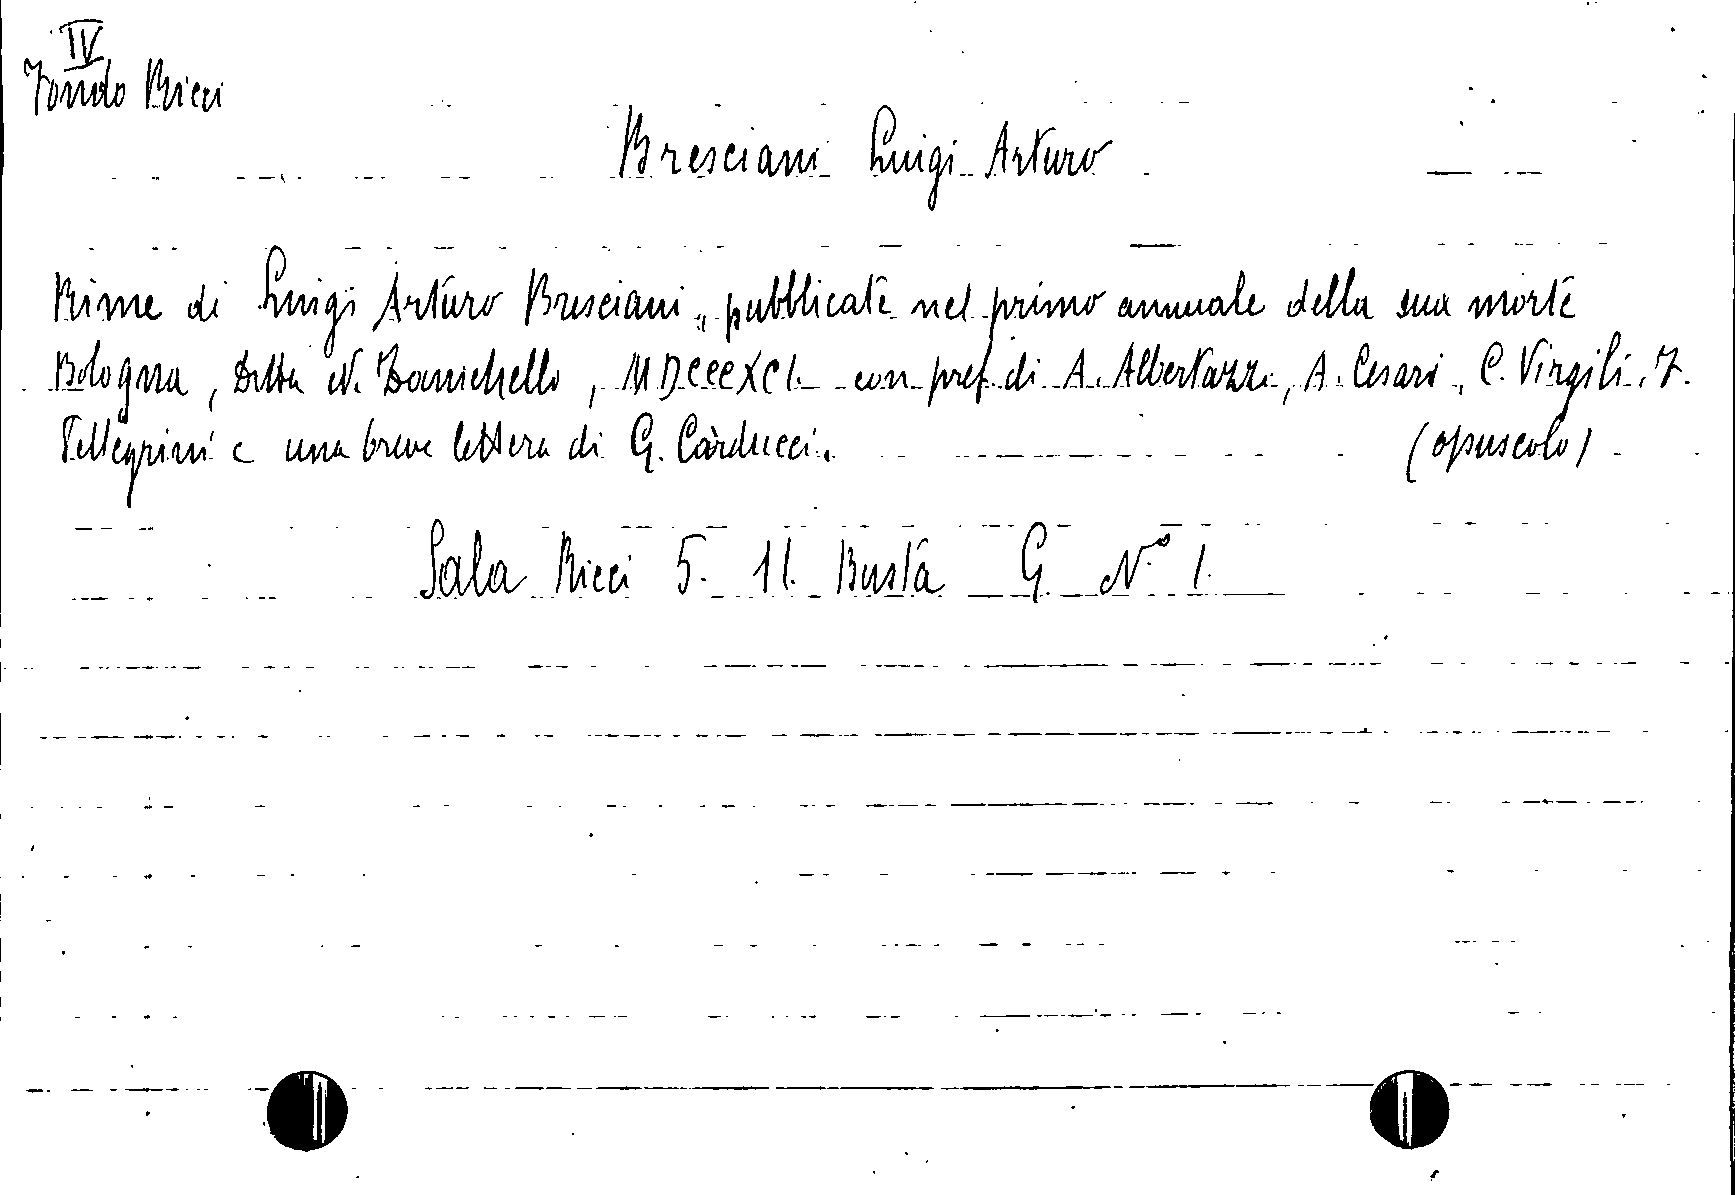 IV
Fondo Ricci
Bresciani Luigi Arturo
Rime di Luigi Arturo Bresciani „ pubblicate nel primo annuale della sua morte
Bologna, Ditta N. Zanichello, MDCCCXCI. con pref. di A. Albertazzi, A. Cesari, C. Virgili, F.
Pellegrini e una breve lettera di G. Carducci. (opuscolo)
Sala Ricci 5. 11. Busta G N.° 1.